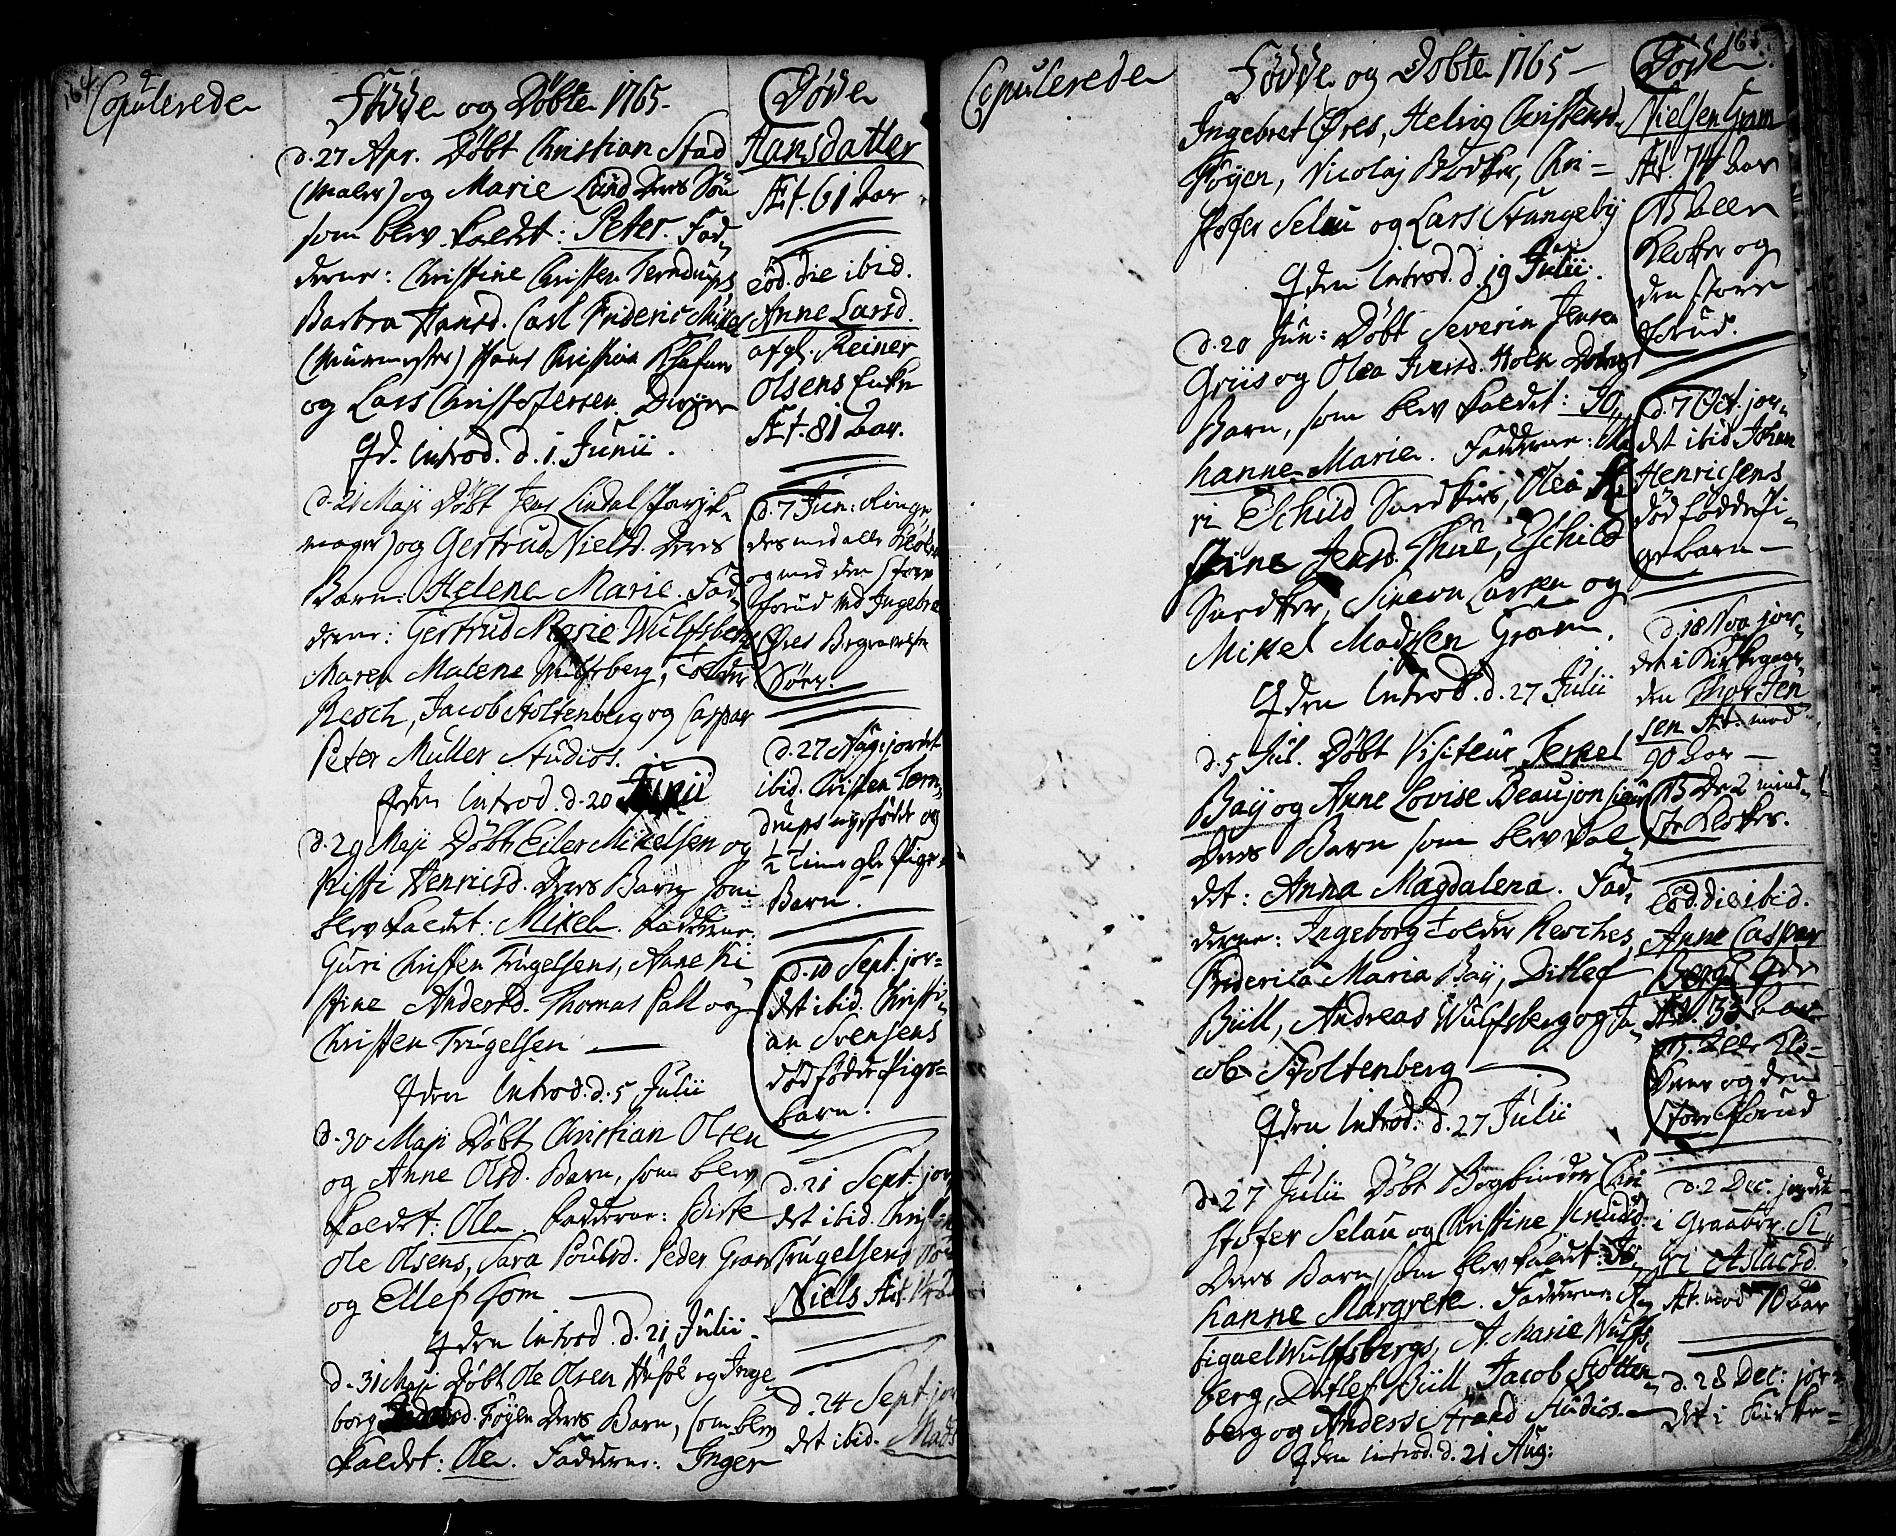 164
Copulerede
Fødde og Døbte 1765.
d. 27 Apr. Døbt Christian Stad
(Maler) og Marie Lund Deres Søn
som blev kaldt: Peter. Fad-
derne: Christine Christen Terndrups
Barbra Hansd. Carl Frideric
(Muurmester) Hans Christian
og Lars Christofersen
Introd. d. 1. Junii.
d. 21 Maji Døbt Jens Lindal
mager) og Gertrud Nielsd. Deres
Barn: Helene Marie. Fad-
derne: Gertrud Marie Wulfsberg
Maren Malene Wulfsberg, Tolder
Resch, Jacob Stoltenberg og Caspar
Peter Müller Studios.
Introd. d. 20 Junii
d. 29 Maji Døbt Eiler Mikelsen og
Kisti Henricsd. Deres Barn som
blev kaldet: Mikel. Fadderne:
Guri Christen Trugelsens, Anne Ki-
stine Andersd. Thomas Falk og
Christen Trugelsen —
Introd. d. 5 Julii
d. 30 Maji Døbt Christian Olsen
og Anne Olsd. Barn, som blev
kaldet: Ole. Fadderne: Birte
Ole Olsens, Sara Poulsd. Peder Gram
og Ellef Som —
Introd. d. 21 Julii.
d. 31 Maji Døbt Ole Olsen og Inge-
borg Føyen Deres Barn, som blev
kaldet: Ole. Fadderne: Inger
Døde
Hansdatter
Æt. 61 Aar
eod. die ibid.
Anne Larsd.
afgl. Reiner
Olsens Enke
Æt. 81 Aar.
d. 7 Jun: Ringe-
des med alle Klokker
og med den store
forud ved Ingebret
Øres Begravelse
Søer.
d. 27 Aug: jordet
ibid. Christen Tern-
drups nyefødde og
½ Time gl. Pige-
Barn.
d. 10 Sept. jor-
det ibid. Christi-
an Svensens
dødfødde Pige-
barn.
d. 21 Sept. jor-
det ibid. Christen
Trugelsens Søn
Niels Æt.
d. 24 Sept jor
det ibid. Mads
165
Copulerede
Fødde og Døbte 1765 —
Ingebret Øres, Helvig Christensd.
Føyen, Nicolaj Bødker, Chri-
stofer Selau og Lars Stangeby
Introd. d. 19 Julii.
d. 20 Jun: Døbt Severin Jensen
Griis og Olea Iversd. Holm Deres
Barn, som blev kaldet: Jo-
hanne Marie. Fadderne: Ma-
ri Eschild Sandkers, Olea
stine Jensd. Thue, Eschild
Sandker, Simeon Larsen og
Mikel Madssen Gram.
Introd. d. 27 Julii
d. 5 Jul. Døbt Visiteur Terkel
Baÿ og Anne Lovise Deaujon
Deres Barn som blev kal-
det: Anna Magdalena. Fad-
derne: Ingeborg Tolder Resches,
Friderica Maria Baÿ, Ditlef
Büll, Andreas Wulfsberg og Ja-
cob Stoltenberg —
Introd. d. 27 Julii
d. 27 Julii Døbt Bogbinder Chri
stofer Selau og Christine Knudsd.
Deres Barn, som blev kaldet: Jo-
hanne Margrete. Fadderne: A-
bigael Wulfsbergs, A. Marie Wulfs-
berg, Ditlef Büll, Jacob Stolten-
berg og Anders Strand Studios. —
Introd. d. 21 Aug:
Døde.
Nielsen Gram
Æt. 74 Aar
NB alle
Klokker og
den store
forud.
d. 7 Oct. jor-
det ibid. Johan
Henricsens
dødfødde Pi-
gebarn —
d. 18 Nov jor-
det i Kirkegaar-
den Thor Jen
sen Æt. mod
90 Aar —
NB De 2 mind-
ste Klokker.
Eod. die ibid.
Anne Caspar
Bergs
Æt. 33 Aar
NB. Alle Klo-
kker og den
store forud
d. 2 Dec. jordet
i Graabr. Si-
ri Aslacsd.
Æt. mod 70 Aar
d. 28 Dec: jor-
det i Kirke-